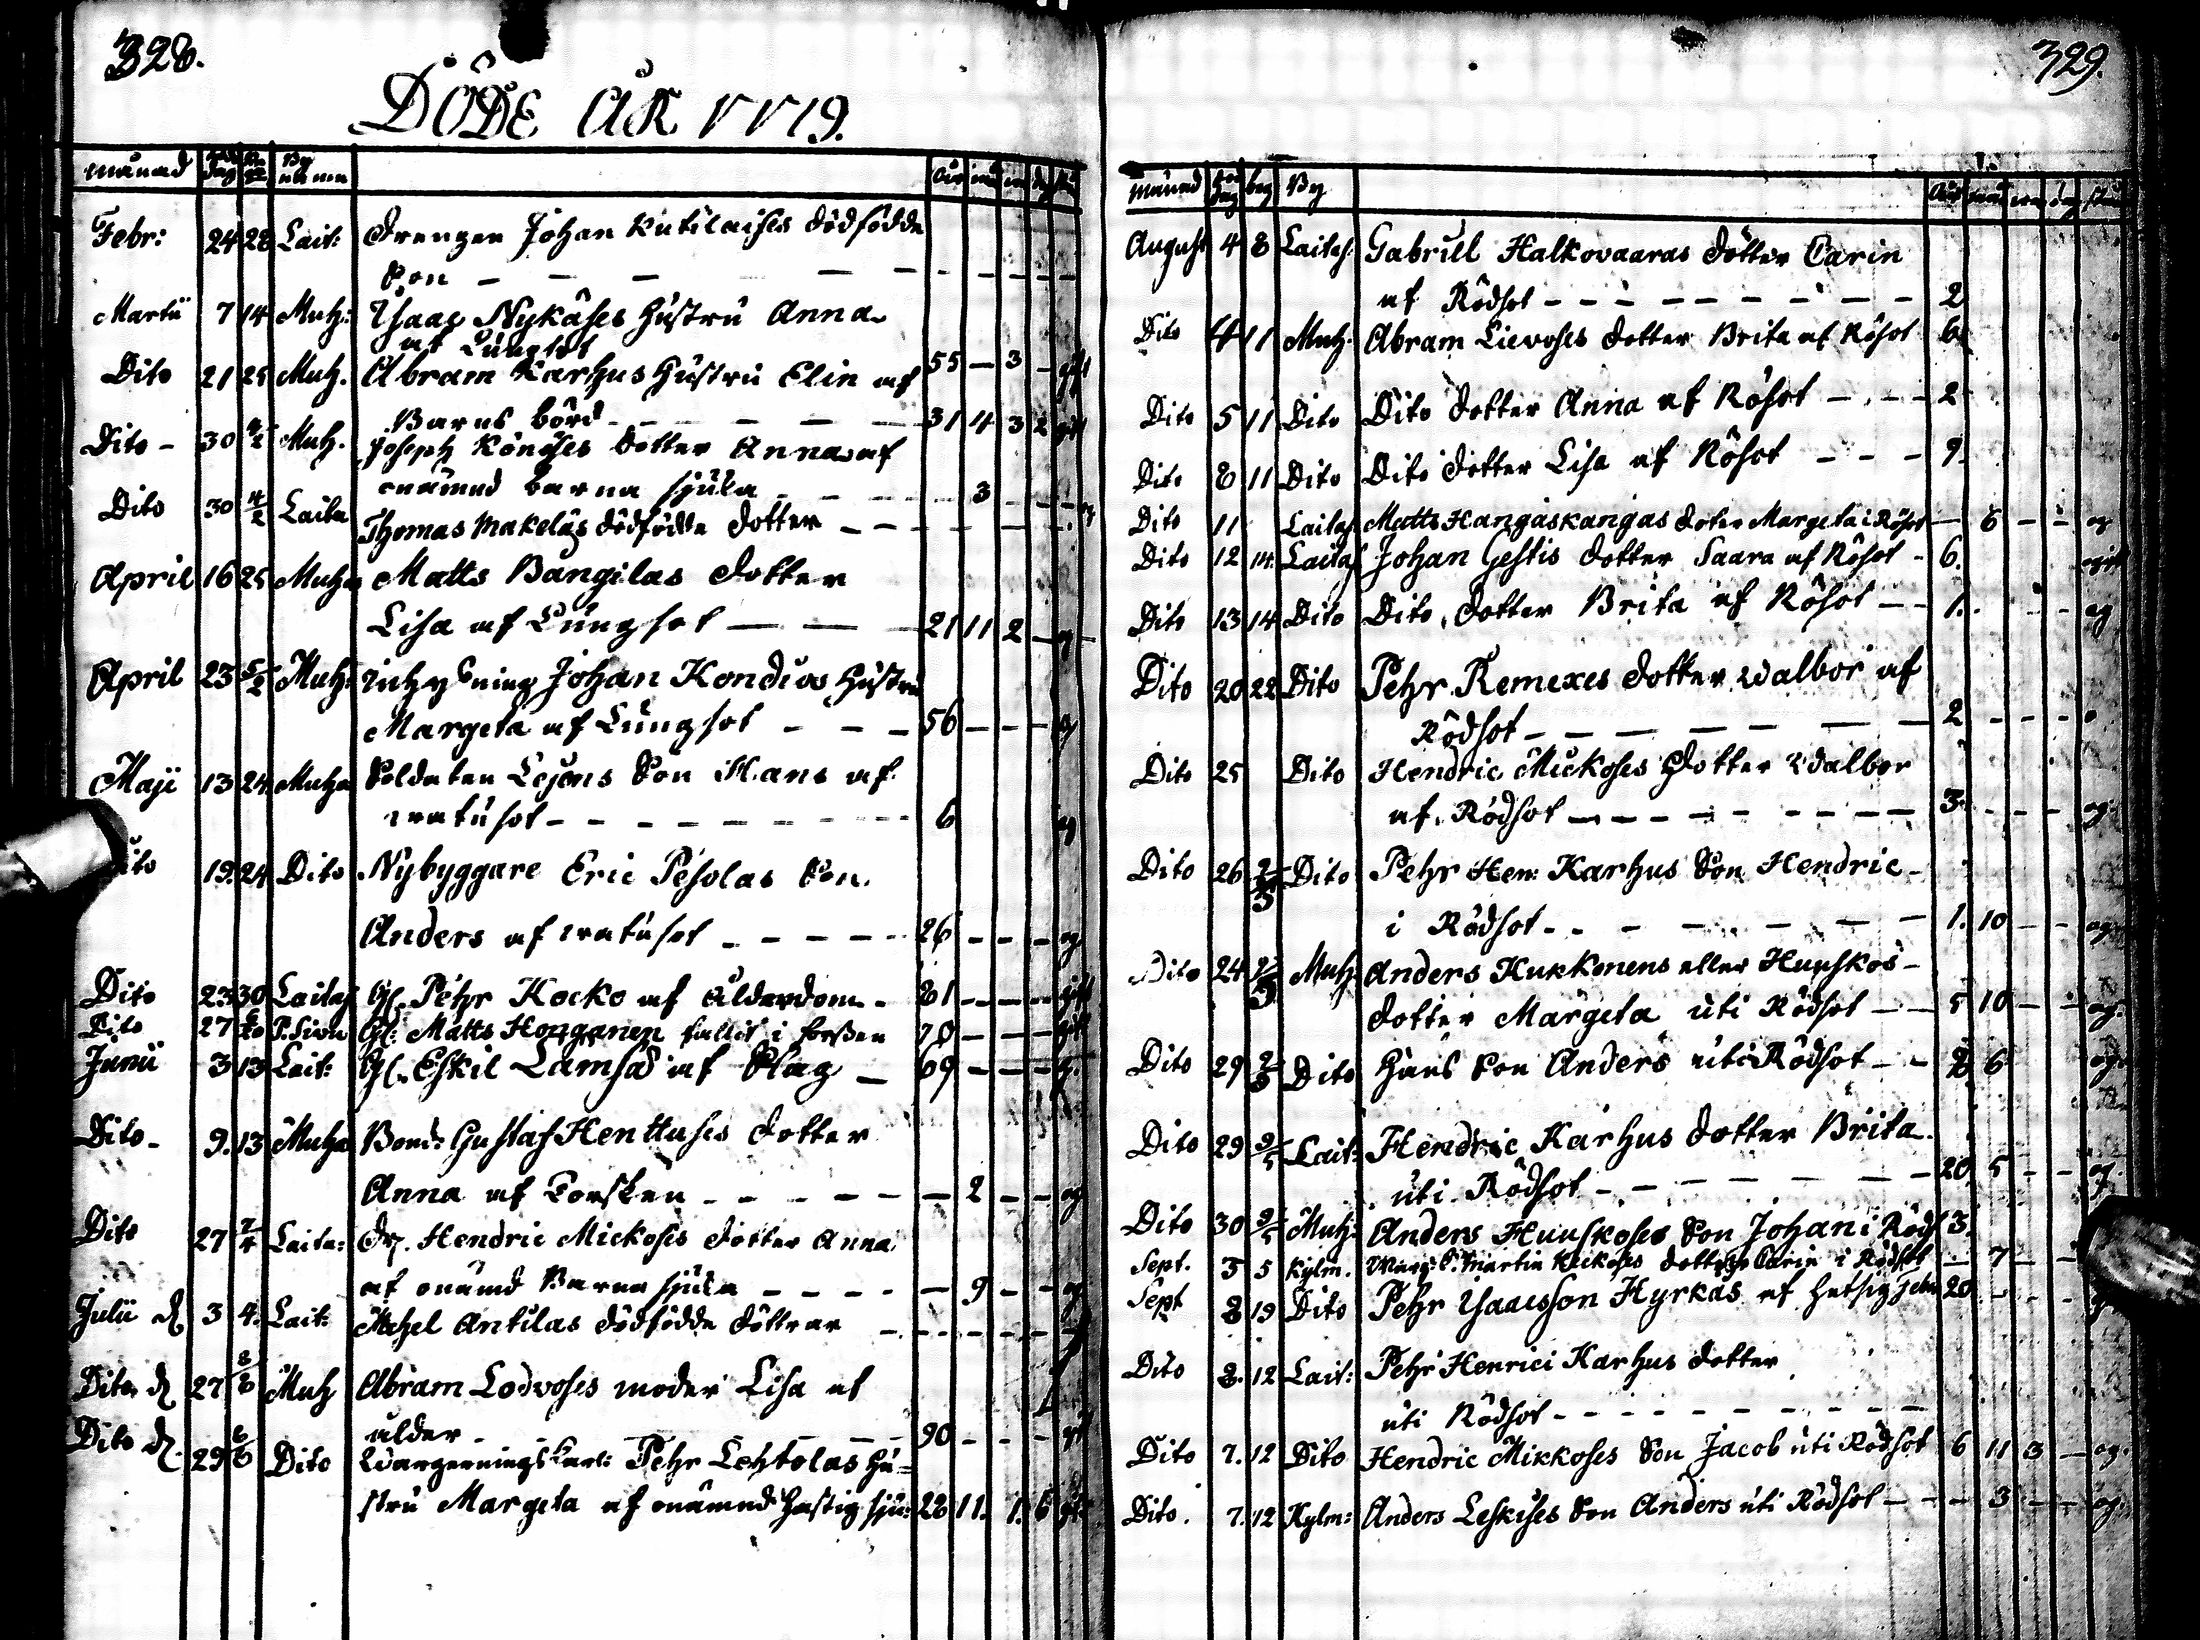 328.
DÖDE ÅR 1779.
månad dag By namn år
Febr: 24 28 Lait: Drengen Johan Kutilaises dödfödde
Son
Martii 7 14 Muh: Isaac Nykäses Hustru Anna
af Lungsot 55 — 3 — gift
Dito 21 25 Muh. Abram Karhus Hustru Elin af
Barns börd 31 4 3 2 gift
Dito 30 4/2 Muh. Joseph Könöses dotter Anna af
onämnd barna sjuka 3
Dito 30 4/2 Laita Thomas Makeläs dödfödde dotter
April 16 25 Muha Matts Vangilas dotter
Lisa af Lungsot 21 11 2 — og
April 23 5/2 Muh: Johan Kondios Hustru
Margeta af Lungsot 56 — — — g
Maji 13 24 Muha Soldaten Lejons Son Hans af
watusot 6 og
Dito 19. 24 Dito Nybyggare Eric Pesolas Son
Anders af watusot 26 — — — og
Dito 23 30 Laitas Gl. Pehr Kocko af ålderdom 81 — — — gift
Dito 27 6/10 P.Sivu Gl: Matts Honganen fallit i forssen 70 — — — gift
Junii 3 13 Lait: Gl. Eskil Lamsa af Slag 69 — — — g.
Dito 9. 13 Muha Bond: Gustaf Henttuses dotter
Anna af Torsken — 2 — — og
Dito 27 7/4 Laita: Dr. Hendric Mickoses dotter Anna
af onämd Barna sjuka — 9 — — og
Julii d 3 4. Lait: Mihel Antilas dödfödde döttrar
Dito d 27 8/8 Muh Abram Lodvoses moder Lisa af
ålder 90 — — — gift
Dito d. 29 Dito Wargernings karl: Pehr Lehtolas Hu-
stru Margeta af onämnd hastig sju: 28 11. 1. 6 gift
329.
månad dag beg By år
August 4 8 Laitas: Gabriel Halkovaaras dotter Carin
af Rödsot 2
Dito 4 11 Muh. Abram Lievoses dotter Brita af Rösot 6
Dito 5 11 Dito Dito dotter Anna af Rösot 2
Dito 8 11 Dito Dito dotter Lisa af Rösot 9.
Dito 11 Laitas Matts Hangaskangas doter Margeta i Rösot — 6 — — og
Dito 12 14. Laitas Johan Gestis dotter Saara af Rösot 6. ogift
Dito 13 14 Dito Dito dotter Brita af Rösot 1. og
Dito 20 22 Dito Pehr Remexes dotter Walbor af
Rödsot 2
Dito 25 Dito Hendric Mickoses dotter Walbor
af Rödsot 3. og:
Dito 26 Dito Pehr Hen: Karhus Son Hendric
i Rödsot 1. 10 — — og
Dito 24 Muh Anders Hukkonens eller Huuskos
dotter Margeta uti Rödsot 5 10 — — og.
Dito 29 2/5 Dito Hans Son Anders uti Rödsot 6 og.
Dito 29 9/5 Lait: Hendric Karhus dotter Brita
uti Rödsot 20 5 — — og.
Dito 30 9/5 Muh: Anders Huuskoses Son Johan i Röds 3.
Sept. 3 5 Kylm. Martin Kickoses dotter Carin i Rödsot — 7 — —
Sept 19 Dito Pehr Isaacsson Hyrkas af 20
Dito 12 Lait: Pehr Henrici Karhus dotter
uti Rödsot
Dito 7. 12 Dito Hendric Mikkoses Son Jacob uti Rödsot 6 11 3 — og.
Dito. 7. 12 Kylm: Anders Leskises Son Anders uti Rödsot — 3 — — og.